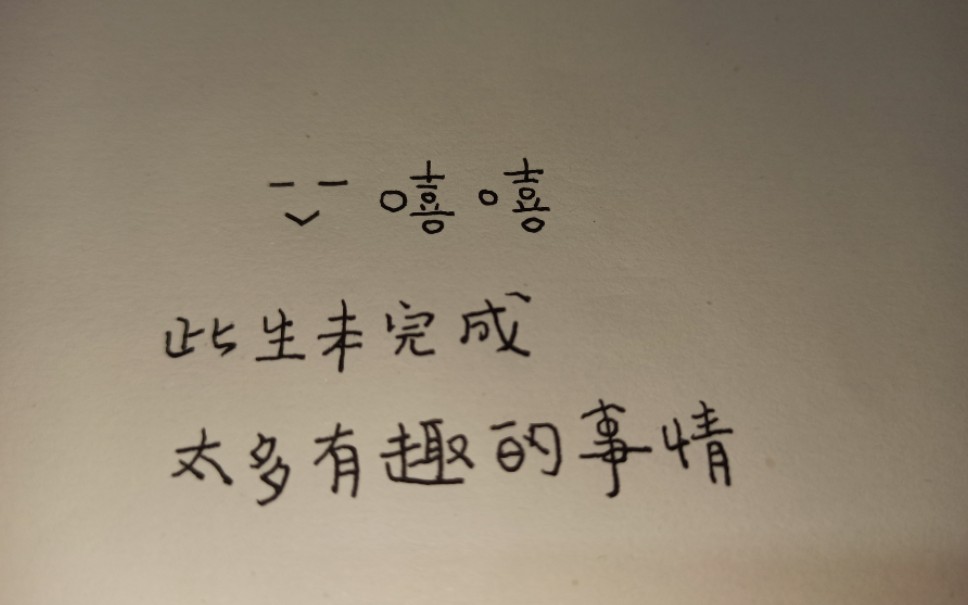 嘻嘻
此生未完成
太多有趣的事情